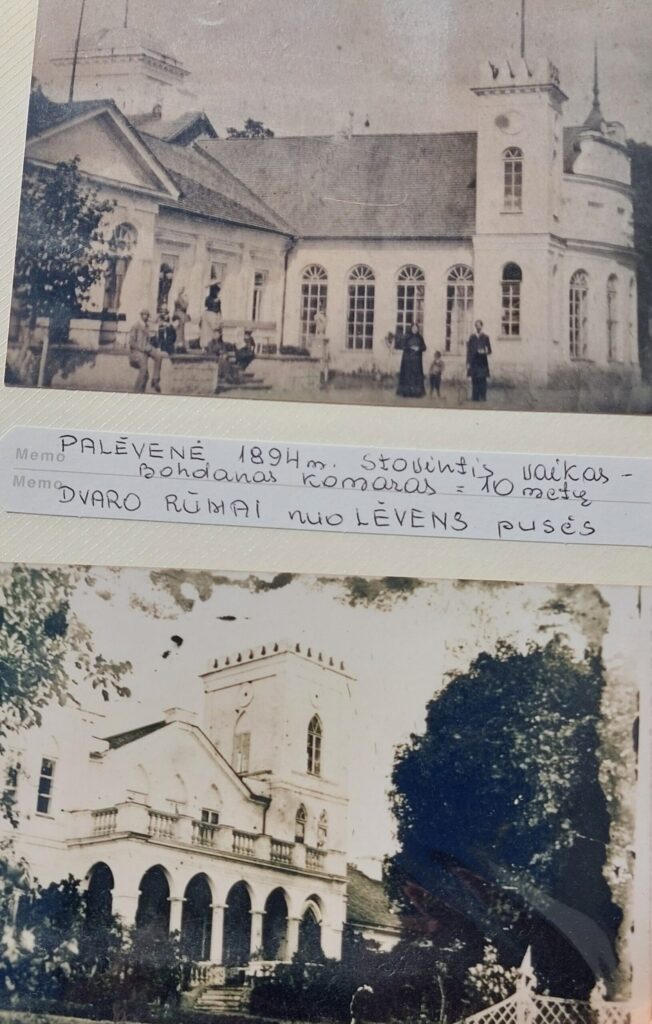 Memo PALĖVENĖ 1894 m. stovintis vaikas -
Memo Bohdanas Komaras = 10 metų
DVARO RŪMAI nuo LĖVENS pusės